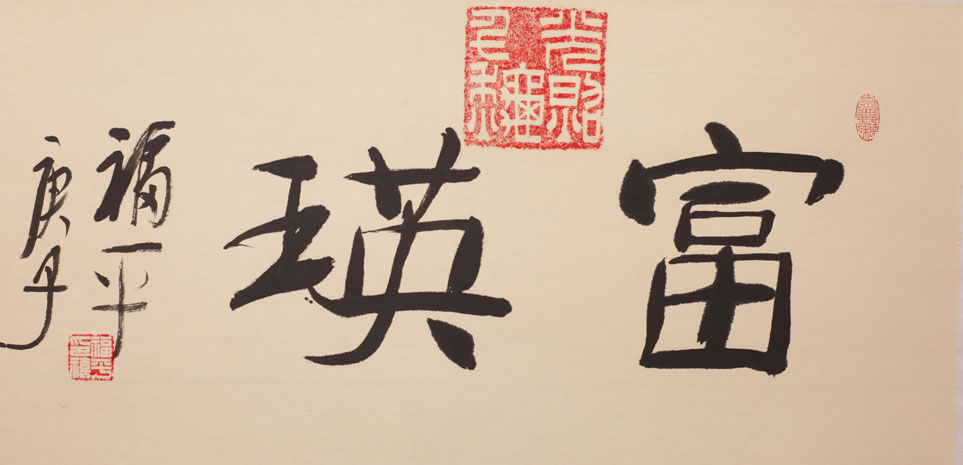 富瑛
福平
庚子